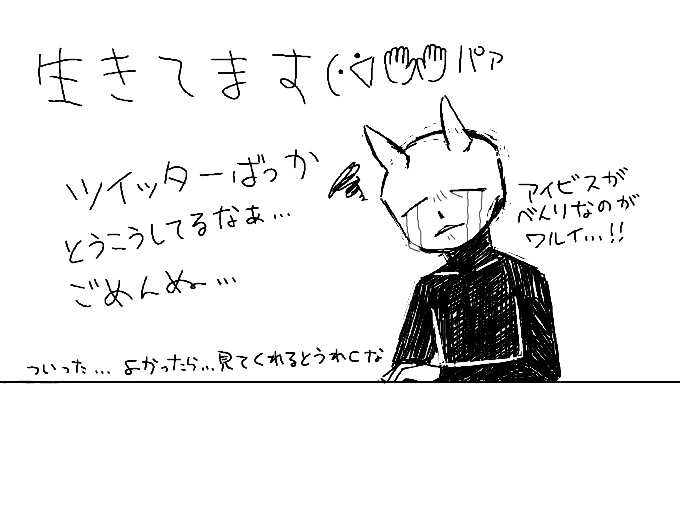 生きてます(·◁👐パァ
ツイッターばっか
とうこうしてるなぁ…
ごめんぬ…
アイビスが
べんりなのが
ワルイ…!!
ついった…よかったら…見てくれるとうれしな